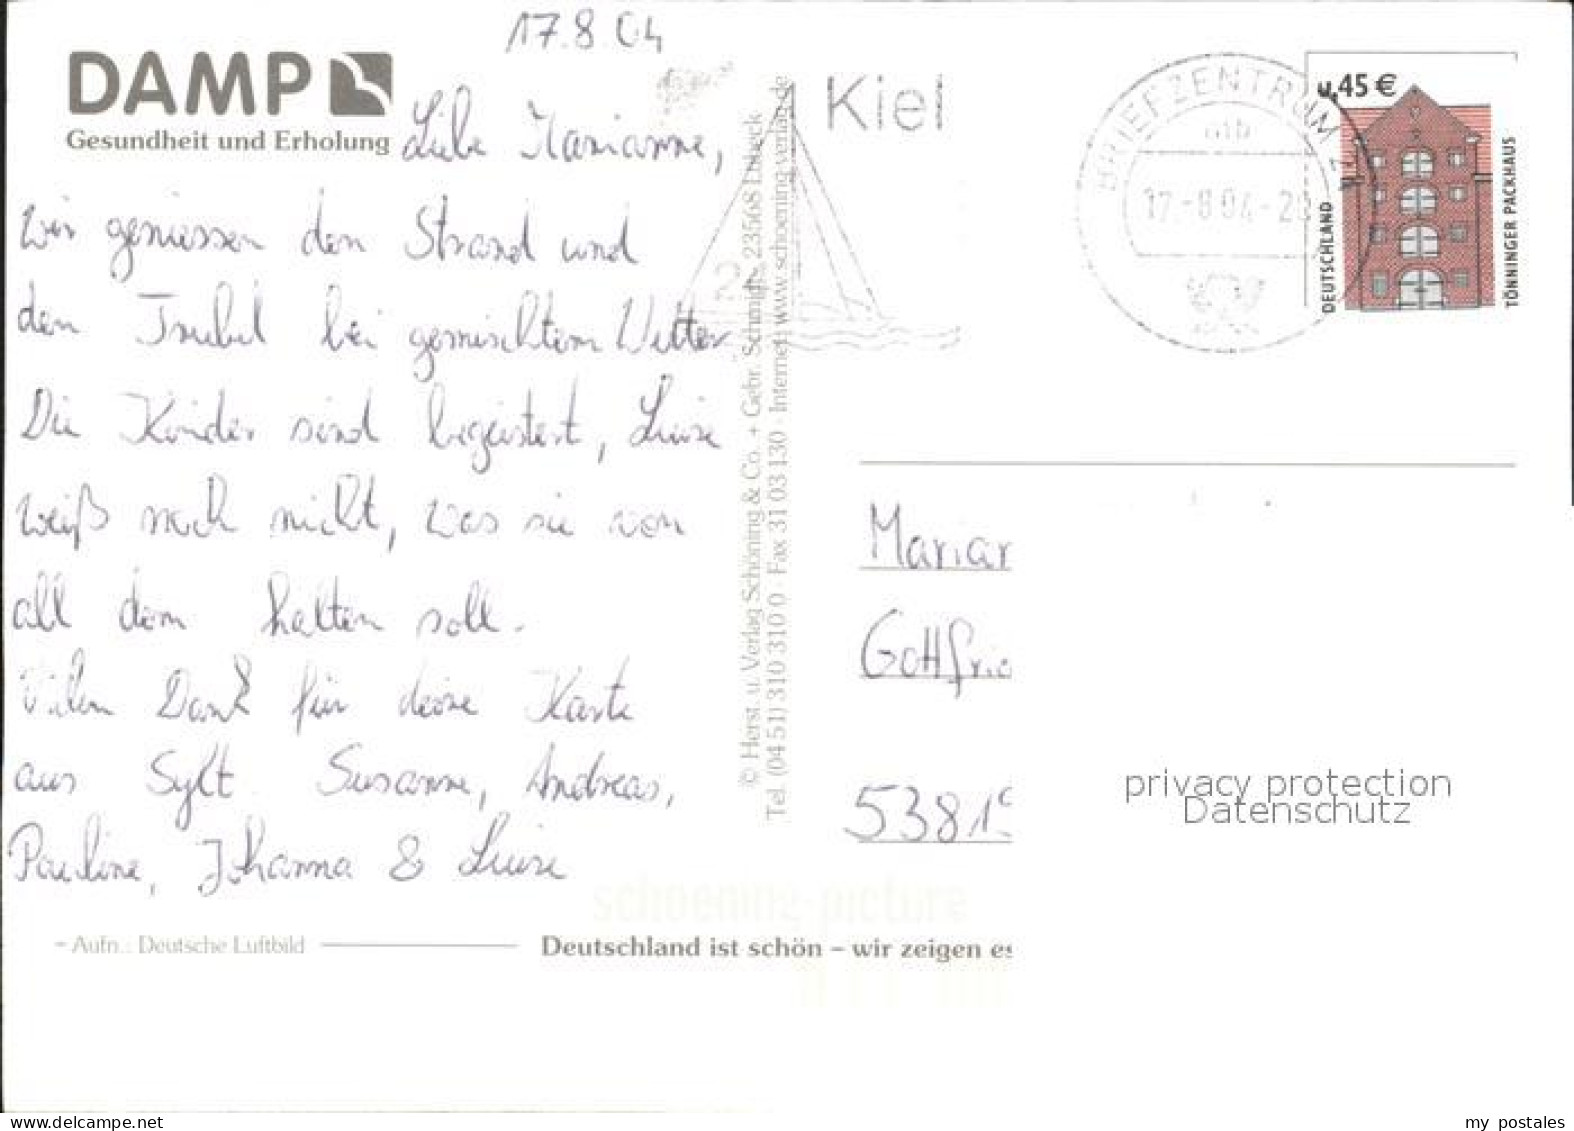 17.8.04
DAMP
Gesundheit und Erholung
Liebe Marianne,
wir geniessen den Strand und
den Trubel bei gemischtem Wetter
Die Kinder sind begeistert, Luise
weiß noch nicht, was sie von
all dem halten soll.
Vielen Dank für deine Karte
aus Sylt. Susanne, Andreas,
Pauline, Johanna & Luise
– Aufn.: Deutsche Luftbild
Deutschland ist schön – wir zeigen es
© Herst. u. Verlag Schöning & Co. + Gebr. Schmidt · 23568 Lübeck
Tel. (04 51) 310 310 0 · Fax 31 03 130 · Internet: www.schoening-verlag.de
schoening-picture
Kiel
BRIEFZENTRUM
mb
17.-8.04-20
0,45 €
DEUTSCHLAND
TÖNNINGER PACKHAUS
Marian
Gottfrie
53819
privacy protection
Datenschutz
my postales
www.delcampe.net